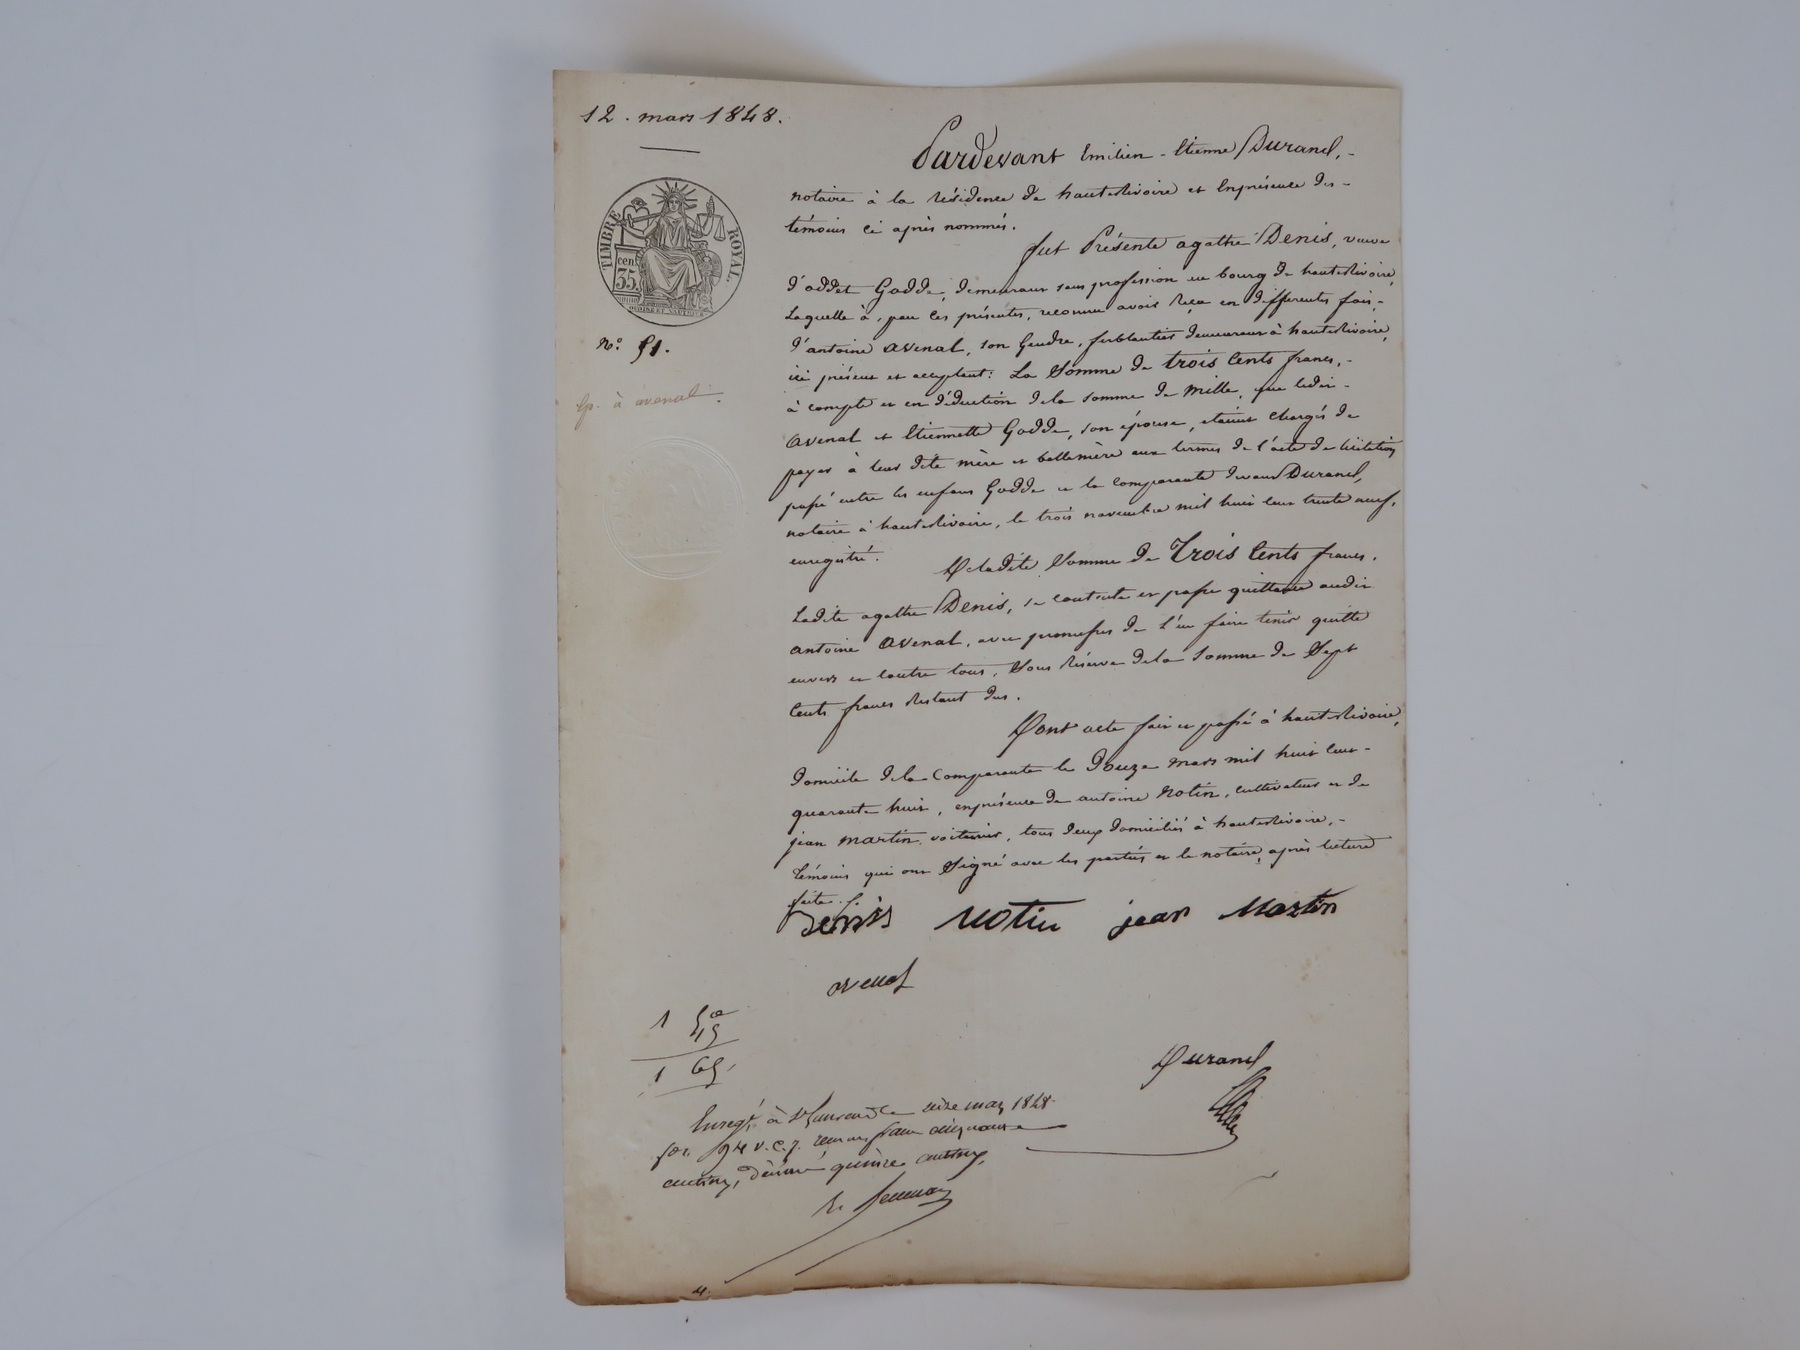 12. mars 1848.
Pardevant Emilien-Etienne Durand,-
notaire à la résidence de hauterivoire et Enprésence des-
témoins ci après nommés.
TIMBRE ROYAL.
cen.
35.
fut Présente agathe Denis, veuve
d'oddet Godde, demeurant sans profession au bourg de hauterivoire,
Laquelle à, par ces présentes, reconnu avoir reçu en differentes fois,-
N° 51.
d'antoine avenal, son Gendre, ferblantier demeurant à hauterivoire,
ici présent et acceptant: La Somme de trois Cents francs,-
Ep. à avenal.
à compte et en déduction dela somme de Mille, que ledit-
avenal et Etiennette Godde, son épouse, étaient Chargés de
payer à leur dite mère et bellemère aux termes de l'acte de licitation
passé entre les enfans Godde et la Comparante devant Durand,
notaire à hauterivoire, le trois novembre mil huit Cent trente neuf,
enregistré.
De ladite Somme de Trois Cents francs.
Ladite agathe Denis, se contente et passe quittance audit
antoine avenal, avec promesses de l'en faire tenir quitte
envers et contre tous, Sous réserve dela Somme de Sept
Cents francs restant dus.
Dont acte fait et passé à hauterivoire,
domicile dela Comparante le Douze mars mil huit Cent-
quarante huit, enprésence de antoine Notin, cultivateur et de
jean Martin, voiturier, tous deux domiciliés à hauterivoire,-
témoins qui ont Signé avec les parties et le notaire, après lecture
faite.
Denis Notin jean Martin
avenal
1 50
1 65
Durand
Enregé à St Laurent le seize mars 1848
fo 94 v. c. 7. reçu un franc cinquante
centimes, décime quinze centimes.